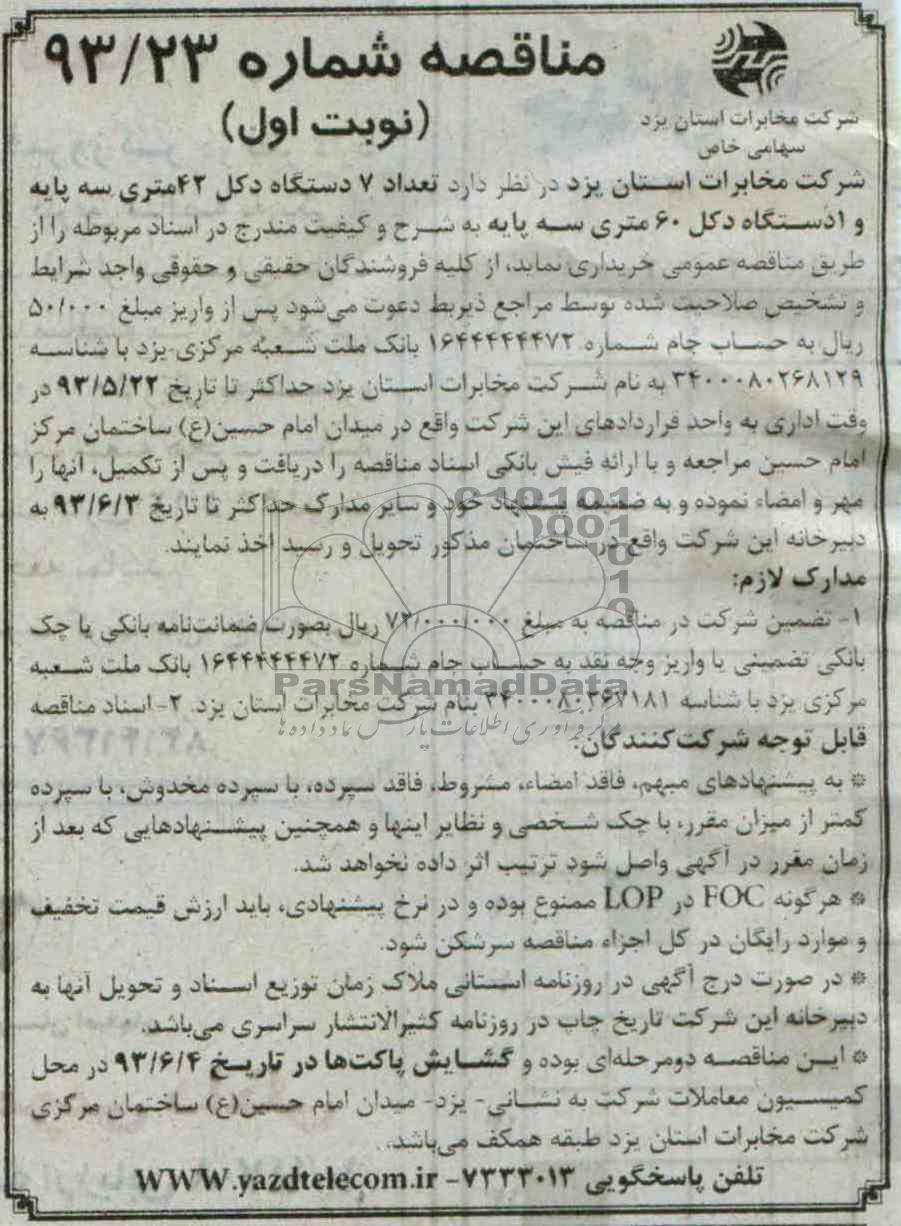 مناقصه شماره ۹۳/۲۳
(نوبت اول)
شرکت مخابرات استان یزد
سهامی خاص
شرکت مخابرات استان یزد در نظر دارد تعداد ۷ دستگاه دکل ۴۲متری سه پایه
و ۱دستگاه دکل ۶۰ متری سه پایه به شرح و کیفیت مندرج در اسناد مربوطه را از
طریق مناقصه عمومی خریداری نماید، از کلیه فروشندگان حقیقی و حقوقی واجد شرایط
و تشخیص صلاحیت شده توسط مراجع ذیربط دعوت می‌شود پس از واریز مبلغ ۵۰/۰۰۰
ریال به حساب جام شماره ۱۶۴۴۴۴۴۴۷۲ بانک ملت شعبه مرکزی-یزد با شناسه
۳۴۰۰۰۸۰۲۶۸۱۲۹ به نام شرکت مخابرات استان یزد حداکثر تا تاریخ ۹۳/۵/۲۲ در
وقت اداری به واحد قراردادهای این شرکت واقع در میدان امام حسین(ع) ساختمان مرکز
امام حسین مراجعه و با ارائه فیش بانکی اسناد مناقصه را دریافت و پس از تکمیل، آنها را
مهر و امضاء نموده و به ضمیمه پیشنهاد خود و سایر مدارک حداکثر تا تاریخ ۹۳/۶/۳ به
دبیرخانه این شرکت واقع در ساختمان مذکور تحویل و رسید اخذ نمایند.
مدارک لازم:
۱- تضمین شرکت در مناقصه به مبلغ ۷۲/۰۰۰/۰۰۰ ریال بصورت ضمانت‌نامه بانکی یا چک
بانکی تضمینی یا واریز وجه نقد به حساب جام شماره ۱۶۴۴۴۴۴۴۷۲ بانک ملت شعبه
مرکزی یزد با شناسه ۳۴۰۰۰۸۰۲۶۷۱۸۱ بنام شرکت مخابرات استان یزد. ۲- اسناد مناقصه
ParsNamadData
قابل توجه شرکت‌کنندگان:
* به پیشنهادهای مبهم، فاقد امضاء، مشروط، فاقد سپرده، با سپرده مخدوش، با سپرده
کمتر از میزان مقرر، با چک شخصی و نظایر اینها و همچنین پیشنهادهایی که بعد از
زمان مقرر در آگهی واصل شود ترتیب اثر داده نخواهد شد.
* هرگونه FOC در LOP ممنوع بوده و در نرخ پیشنهادی، باید ارزش قیمت تخفیف
و موارد رایگان در کل اجزاء مناقصه سرشکن شود.
* در صورت درج آگهی در روزنامه استانی ملاک زمان توزیع اسناد و تحویل آنها به
دبیرخانه این شرکت تاریخ چاپ در روزنامه کثیرالانتشار سراسری می‌باشد.
* این مناقصه دومرحله‌ای بوده و گشایش پاکت‌ها در تاریخ ۹۳/۶/۴ در محل
کمیسیون معاملات شرکت به نشانی- یزد- میدان امام حسین(ع) ساختمان مرکزی
شرکت مخابرات استان یزد طبقه همکف می‌باشد.
تلفن پاسخگویی ۷۲۳۳۰۱۳- WWW.yazdtelecom.ir